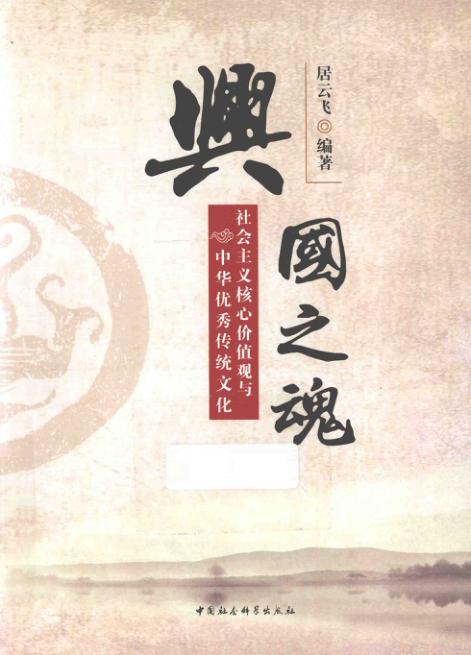 興國之魂
社会主义核心价值观与
中华优秀传统文化
居云飞◎编著
中国社会科学出版社